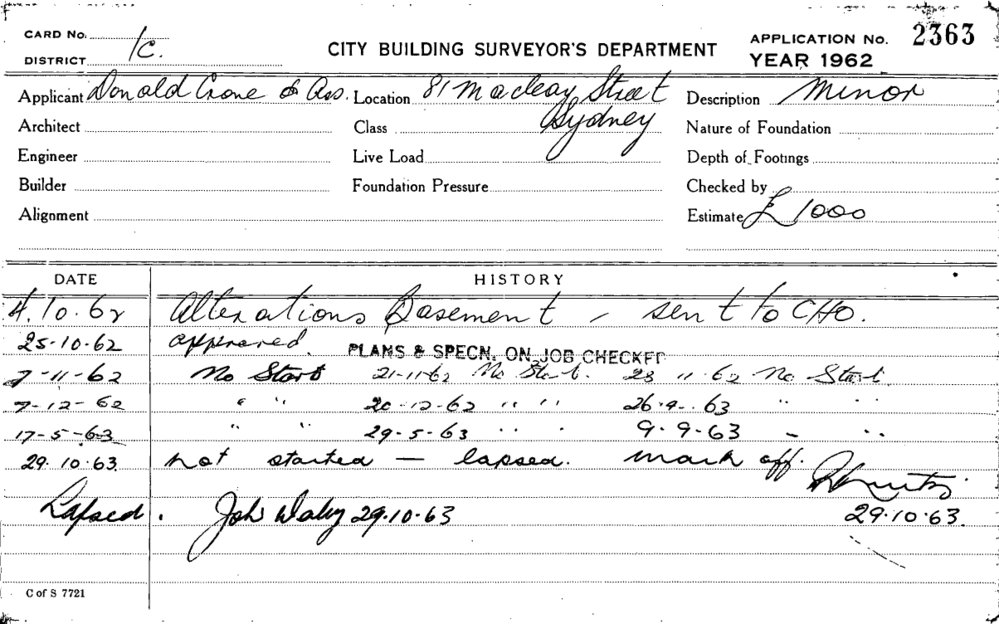 CARD No. 1C.
DISTRICT
CITY BUILDING SURVEYOR'S DEPARTMENT
APPLICATION No. 2363
YEAR 1962
Applicant Donald Crone & Ass. Location 81 Macleay Street Description Minor
Architect Class Sydney Nature of Foundation
Engineer Live Load Depth of Footings
Builder Foundation Pressure Checked by
Alignment Estimate £ 1000
DATE HISTORY
4.10.62 Alterations Basement - sent to CHO.
25-10-62 approved. PLANS & SPECN. ON JOB CHECKED
7-11-62 No Start 21-11-62 No Start. 28 11 62 No Start.
7-12-62 " " 20-12-62 " " 26-9-63 " "
17-5-63 " " 29-5-63 " " 9-9-63 - "
29.10.63. not started — lapsed. mark off.
Lapsed. 29.10.63 29.10.63.
C of S 7721